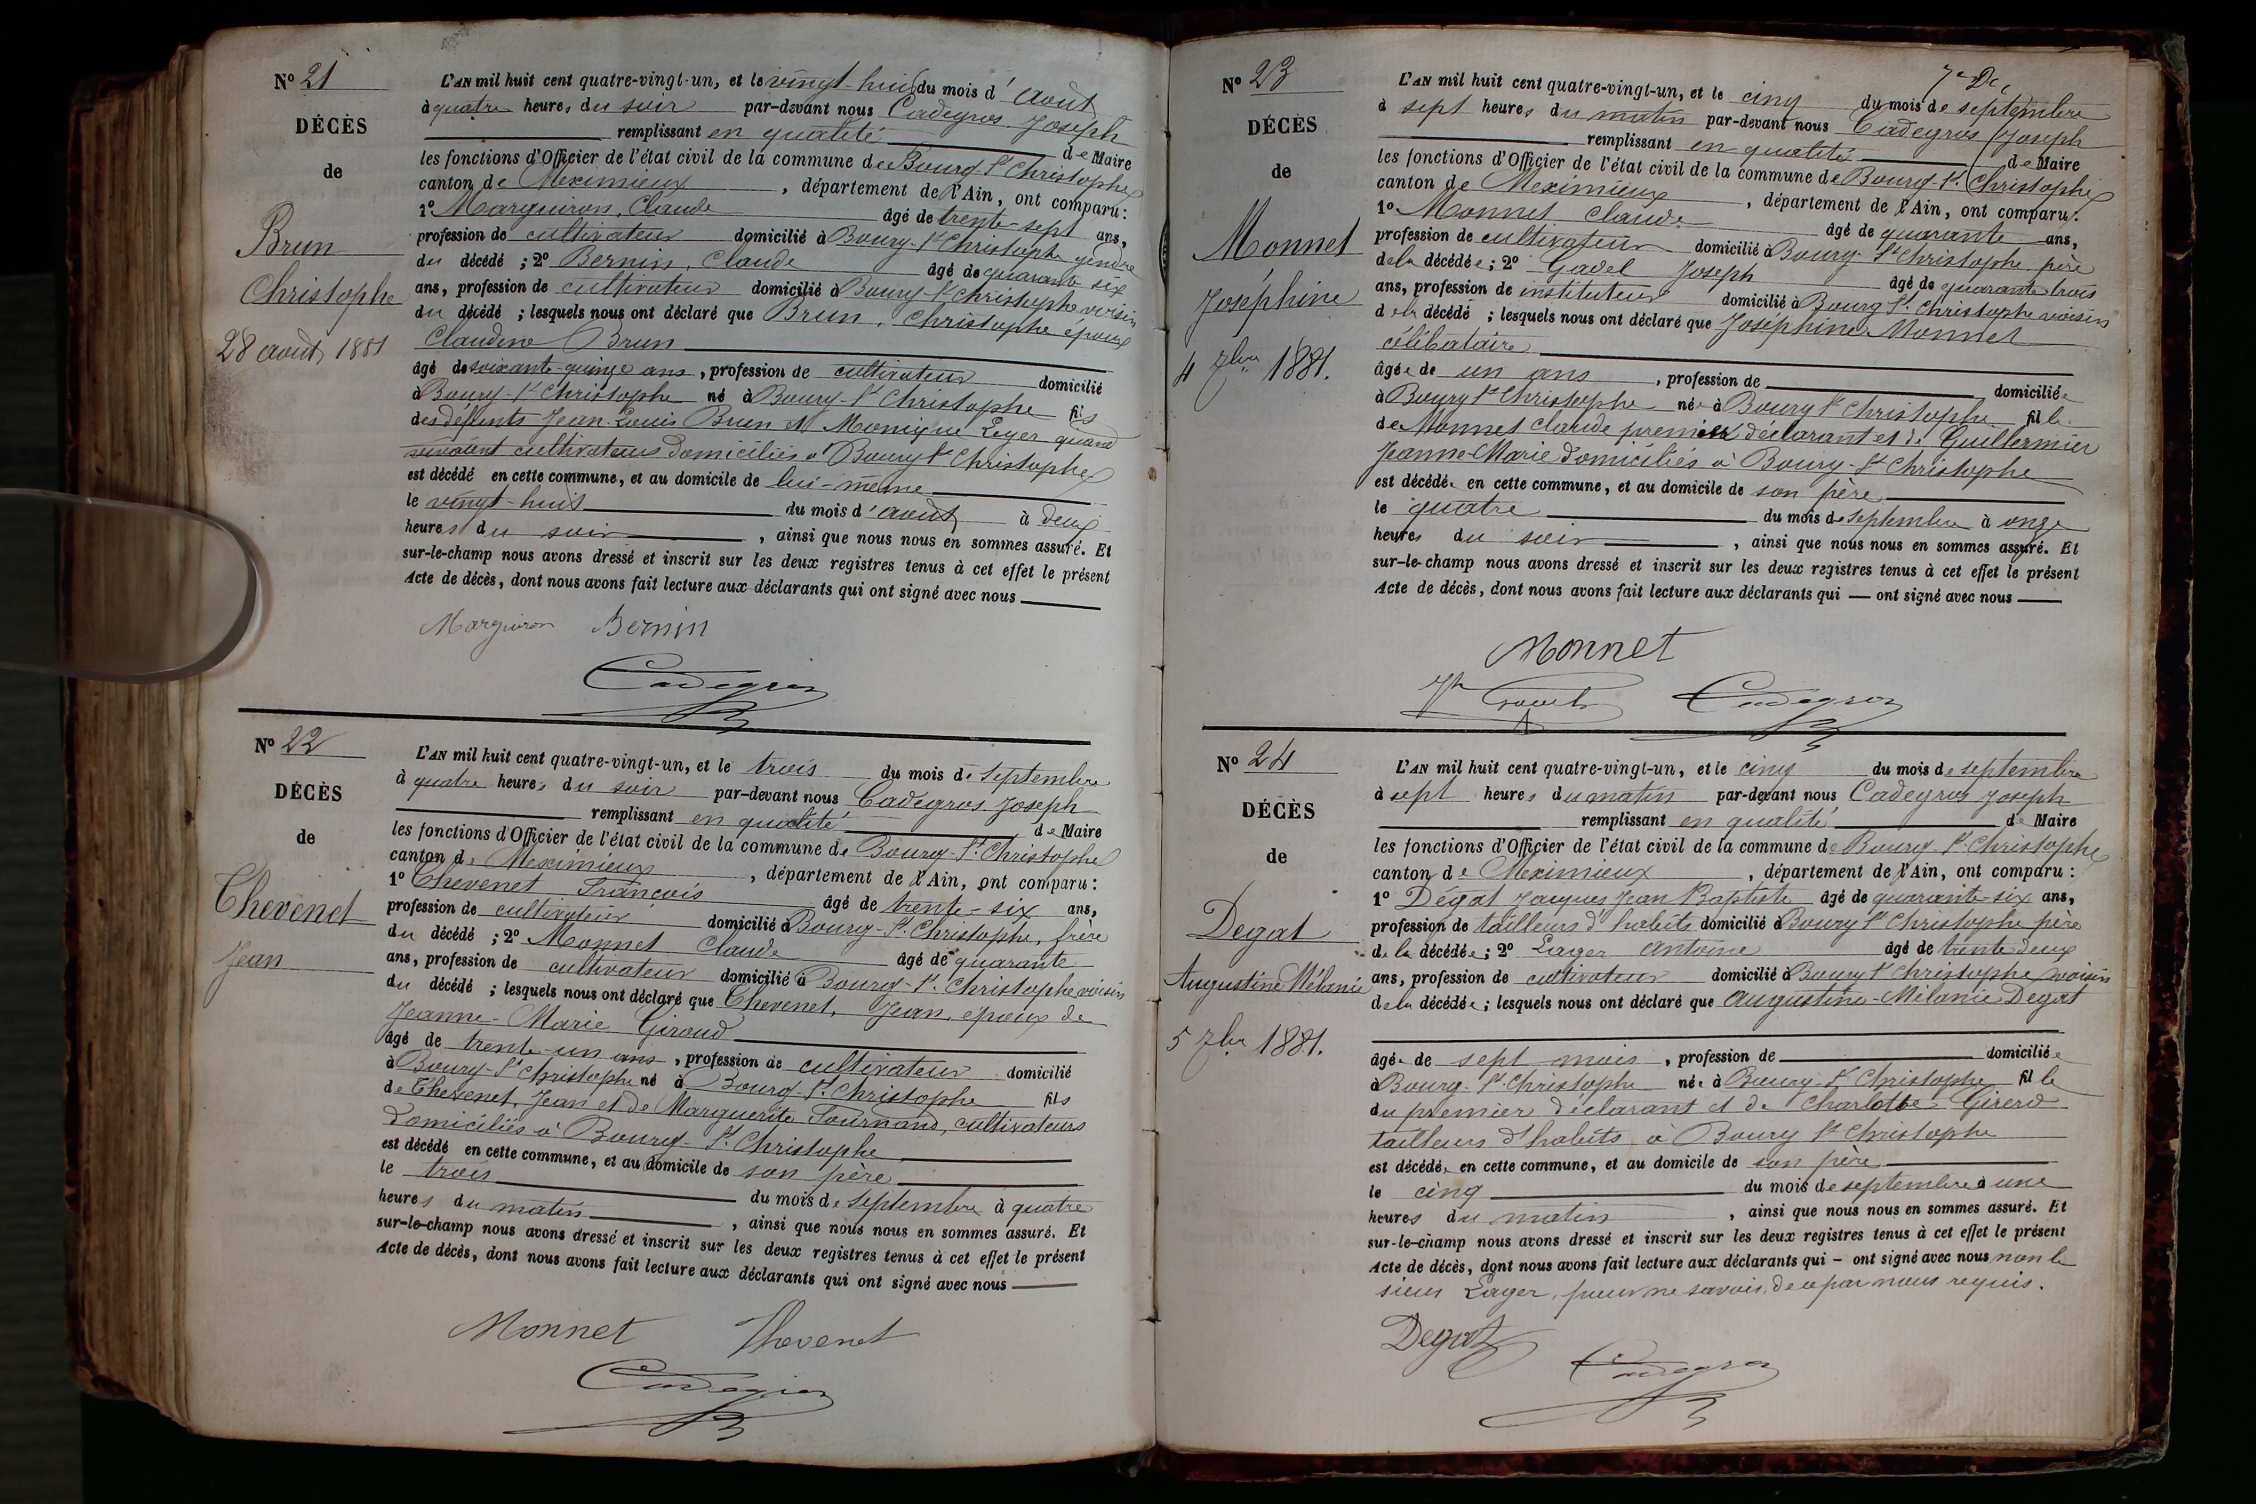 Nº 21
DÉCÈS
de
Brun
Christophe
28 août 1881
L'AN mil huit cent quatre-vingt-un, et le vingt-huit du mois d'août
à quatre heures du soir par-devant nous Cadegros Joseph
remplissant en qualité de Maire
les fonctions d'Officier de l'état civil de la commune de Bourg St Christophe
canton de Meximieux, département de l'Ain, ont comparu:
1º Marguiron, Claude âgé de trente-sept ans,
profession de cultivateur domicilié à Bourg-St Christophe gendre
du décédé ; 2º Bernin, Claude âgé de quarante six
ans, profession de cultivateur domicilié à Bourg-St Christophe voisin
du décédé ; lesquels nous ont déclaré que Brun, Christophe époux
Claudine Brun
âgé de soixante-quinze ans, profession de cultivateur domicilié
à Bourg-St Christophe né à Bourg-St Christophe fils
des défunts Jean-Louis Brun et Monique Leyer quand
vivaient cultivateurs domiciliés à Bourg St Christophe
est décédé en cette commune, et au domicile de lui-même
le vingt-huit du mois d'août à deux
heures du soir, ainsi que nous nous en sommes assuré. Et
sur-le-champ nous avons dressé et inscrit sur les deux registres tenus à cet effet le présent
Acte de décès, dont nous avons fait lecture aux déclarants qui ont signé avec nous
Marguiron Bernin
Cadegros
Nº 22
DÉCÈS
de
Thevenet
Jean
L'AN mil huit cent quatre-vingt-un, et le trois du mois de septembre
à quatre heures du soir par-devant nous Cadegros Joseph
remplissant en qualité de Maire
les fonctions d'Officier de l'état civil de la commune de Bourg-St Christophe
canton de Meximieux, département de l'Ain, ont comparu:
1º Thevenet François âgé de trente-six ans,
profession de cultivateur domicilié à Bourg-St Christophe, frère
du décédé ; 2º Monnet Claude âgé de quarante
ans, profession de cultivateur domicilié à Bourg-St Christophe voisin
du décédé ; lesquels nous ont déclaré que Thevenet, Jean, époux de
Jeanne-Marie Giroud
âgé de trente-un ans, profession de cultivateur domicilié
à Bourg-St Christophe né à Bourg St Christophe fils
de Thevenet, Jean et de Marguerite Tournand, cultivateurs
domiciliés à Bourg-St Christophe
est décédé en cette commune, et au domicile de son père
le trois du mois de septembre à quatre
heures du matin, ainsi que nous nous en sommes assuré. Et
sur-le-champ nous avons dressé et inscrit sur les deux registres tenus à cet effet le présent
Acte de décès, dont nous avons fait lecture aux déclarants qui ont signé avec nous
Monnet Thevenet
Cadegros
7e Dc,
Nº 23
DÉCÈS
de
Monnet
Joséphine
4 7bre 1881.
L'AN mil huit cent quatre-vingt-un, et le cinq du mois de septembre
à sept heures du matin par-devant nous Cadegros Joseph
remplissant en qualité de Maire
les fonctions d'Officier de l'état civil de la commune de Bourg-St Christophe
canton de Meximieux, département de l'Ain, ont comparu:
1º Monnet Claude âgé de quarante ans,
profession de cultivateur domicilié à Bourg-St Christophe père
de la décédée ; 2º Joseph âgé de quarante trois
ans, profession de instituteur domicilié à Bourg St Christophe voisin
de la décédé ; lesquels nous ont déclaré que Joséphine Monnet
célibataire
âgée de un ans, profession de domiciliée
à Bourg St Christophe née à Bourg St Christophe fille
de Monnet Claude premier déclarant et de Guillermier
Jeanne-Marie domiciliés à Bourg-St Christophe
est décédée en cette commune, et au domicile de son père
le quatre du mois de septembre à onze
heures du soir, ainsi que nous nous en sommes assuré. Et
sur-le-champ nous avons dressé et inscrit sur les deux registres tenus à cet effet le présent
Acte de décès, dont nous avons fait lecture aux déclarants qui — ont signé avec nous
Monnet
Cadegros
Nº 24
DÉCÈS
de
Degat
Augustine Mélanie
5 7bre 1881.
L'AN mil huit cent quatre-vingt-un, et le cinq du mois de septembre
à sept heures du matin par-devant nous Cadegros Joseph
remplissant en qualité de Maire
les fonctions d'Officier de l'état civil de la commune de Bourg-St Christophe
canton de Meximieux, département de l'Ain, ont comparu:
1º Dégat Jacques Jean Baptiste âgé de quarante-six ans,
profession de tailleurs d'habits domicilié à Bourg St Christophe père
de la décédée ; 2º Lager Antoine âgé de trente deux
ans, profession de cultivateur domicilié à Bourg St Christophe voisin
de la décédée ; lesquels nous ont déclaré que Augustine-Mélanie Degat
âgée de sept mois, profession de domiciliée
à Bourg-St Christophe née à Bourg-St Christophe fille
du premier déclarant et de Charlotte Girerd
tailleurs d'habits à Bourg St Christophe
est décédée en cette commune, et au domicile de son père
le cinq du mois de septembre à une
heures du matin, ainsi que nous nous en sommes assuré. Et
sur-le-champ nous avons dressé et inscrit sur les deux registres tenus à cet effet le présent
Acte de décès, dont nous avons fait lecture aux déclarants qui – ont signé avec nous non le
sieur Lager, pour ne savoir, de ce par nous requis.
Degat
Cadegros